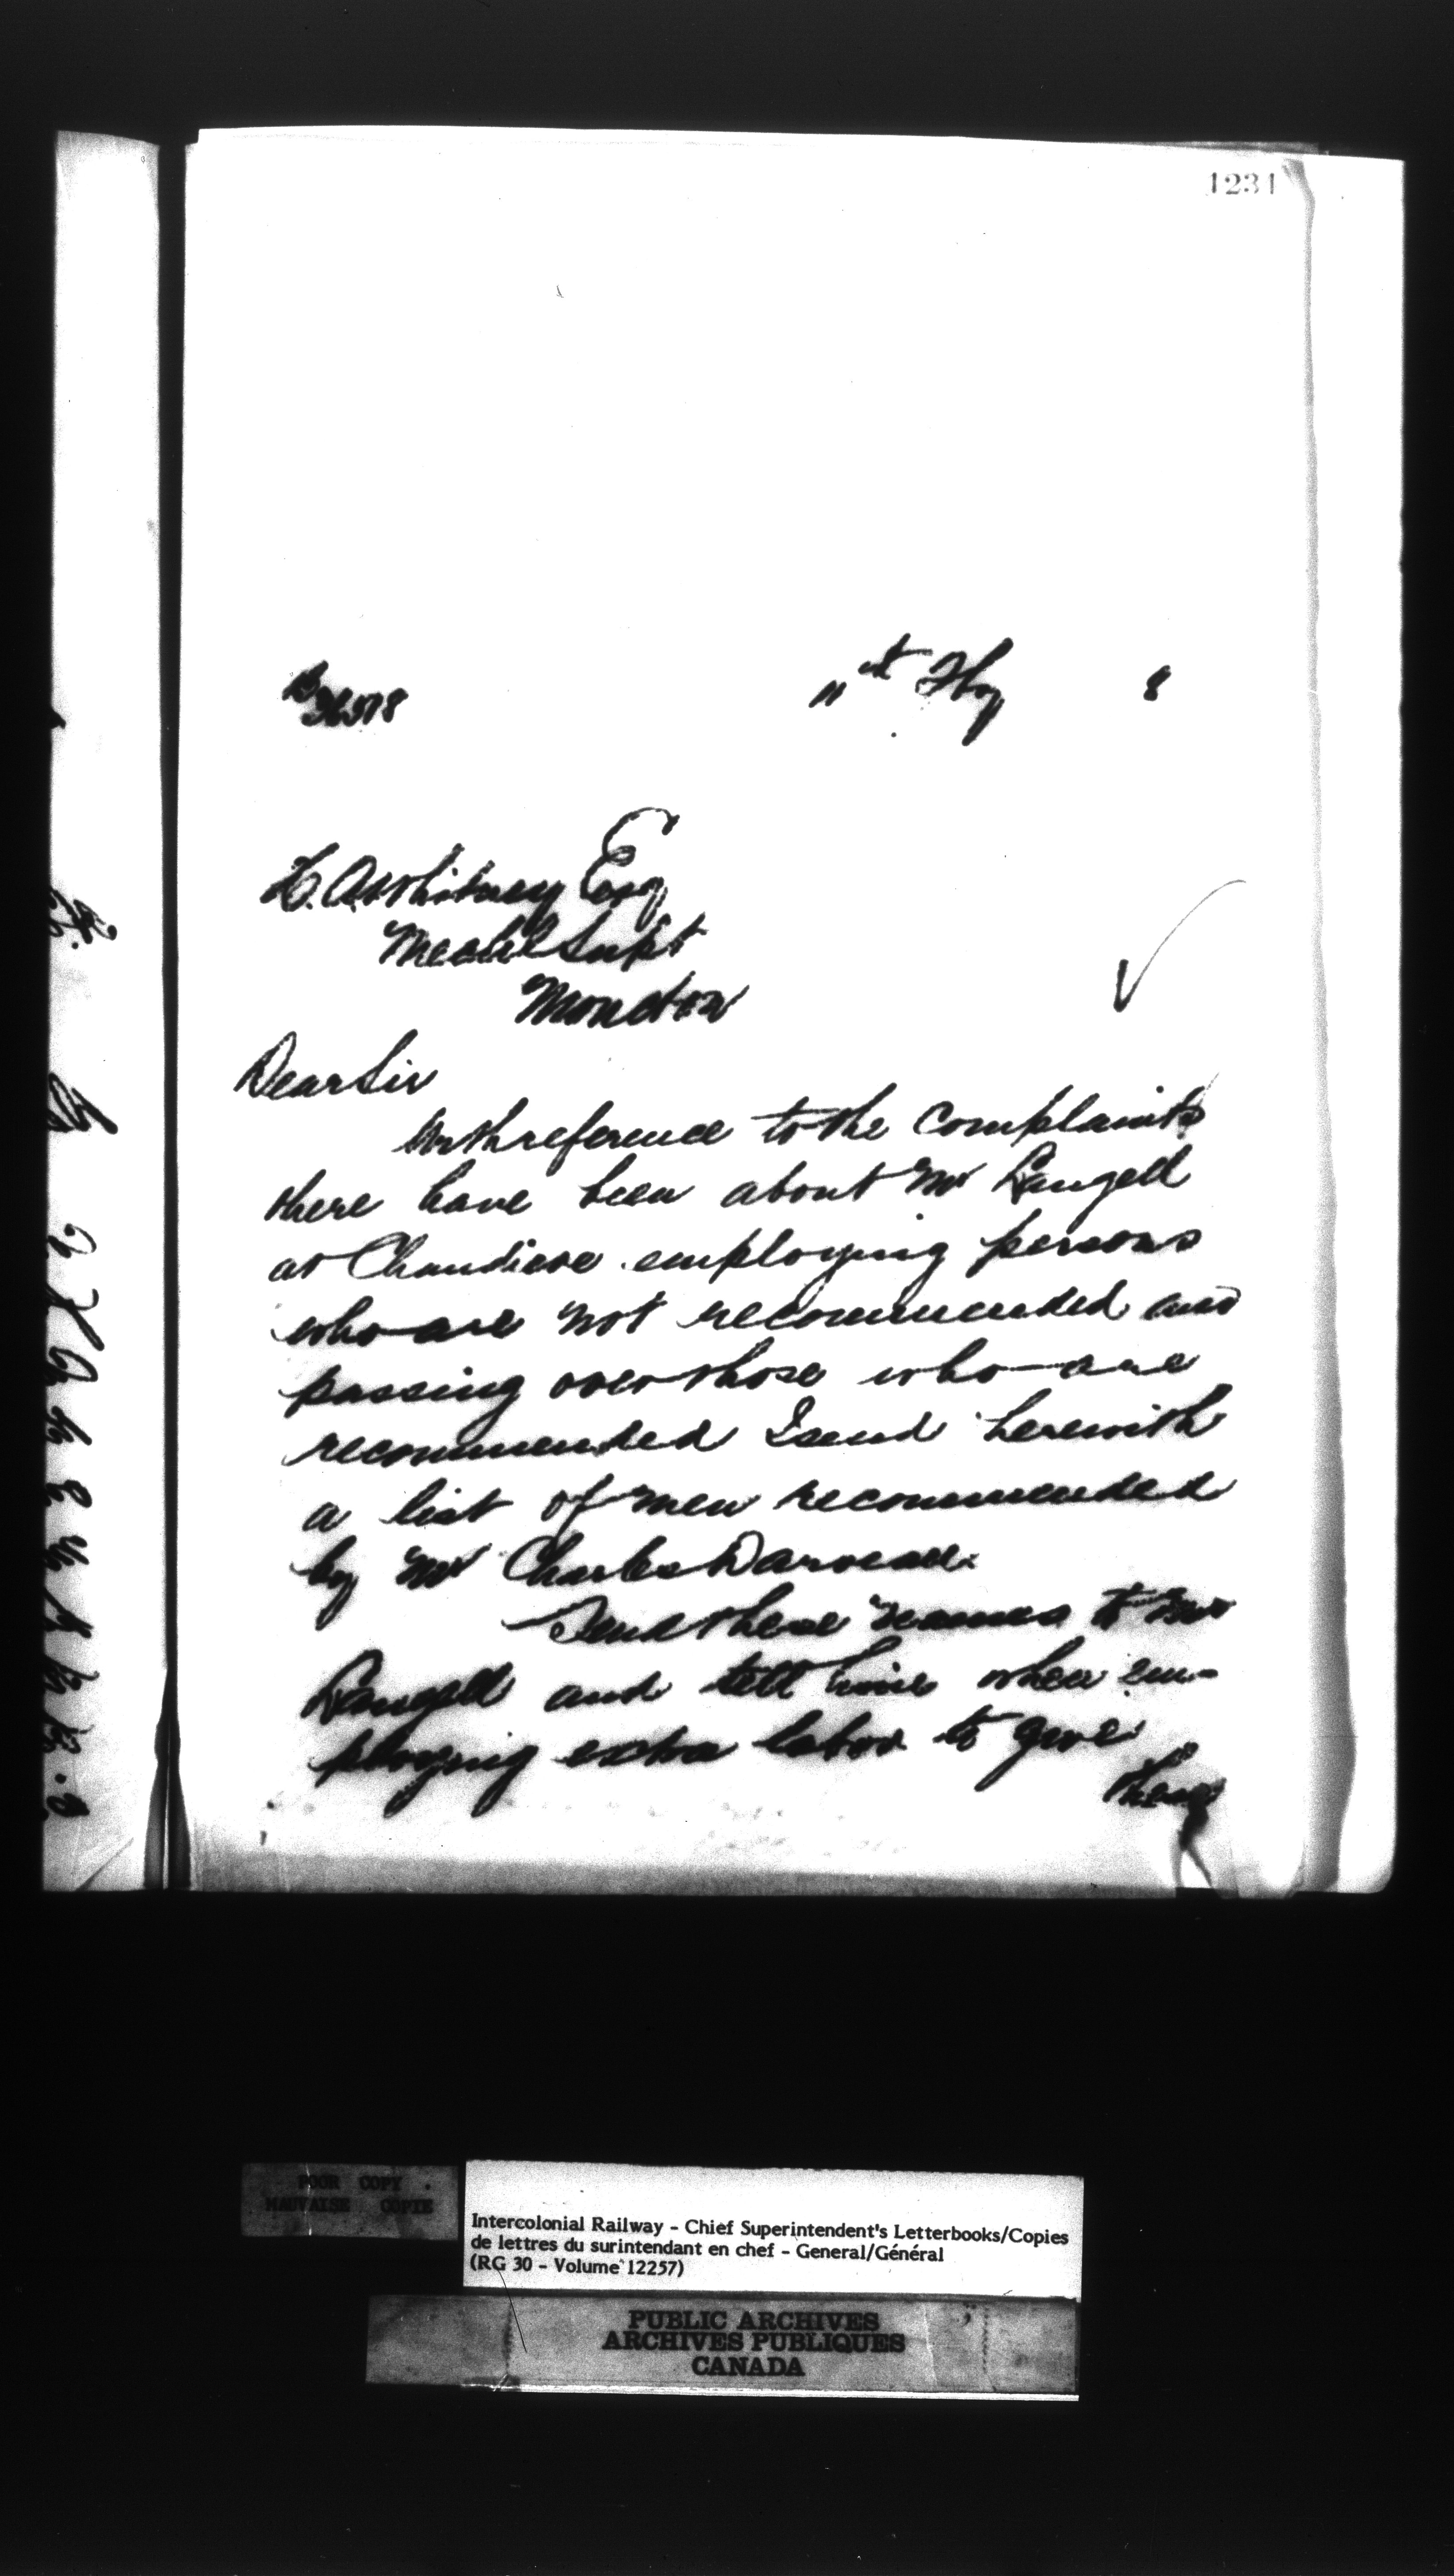 1231
36578
11th Fby 8
H. A. Whitney Esq
Mechl Supt
Moncton
Dear Sir
With reference to the complaints
there have been about Mr Langell
at Chaudiere employing persons
who are not recommended and
passing over those who are
recommended I send herewith
a list of men recommended
by Mr Charles Darveau.
Send these names to Mr
Langell and tell him when em-
ploying extra labor to give
them
POOR COPY
MAUVAISE COPIE
Intercolonial Railway - Chief Superintendent's Letterbooks/Copies
de lettres du surintendant en chef - General/Général
(RG 30 - Volume 12257)
PUBLIC ARCHIVES
ARCHIVES PUBLIQUES
CANADA